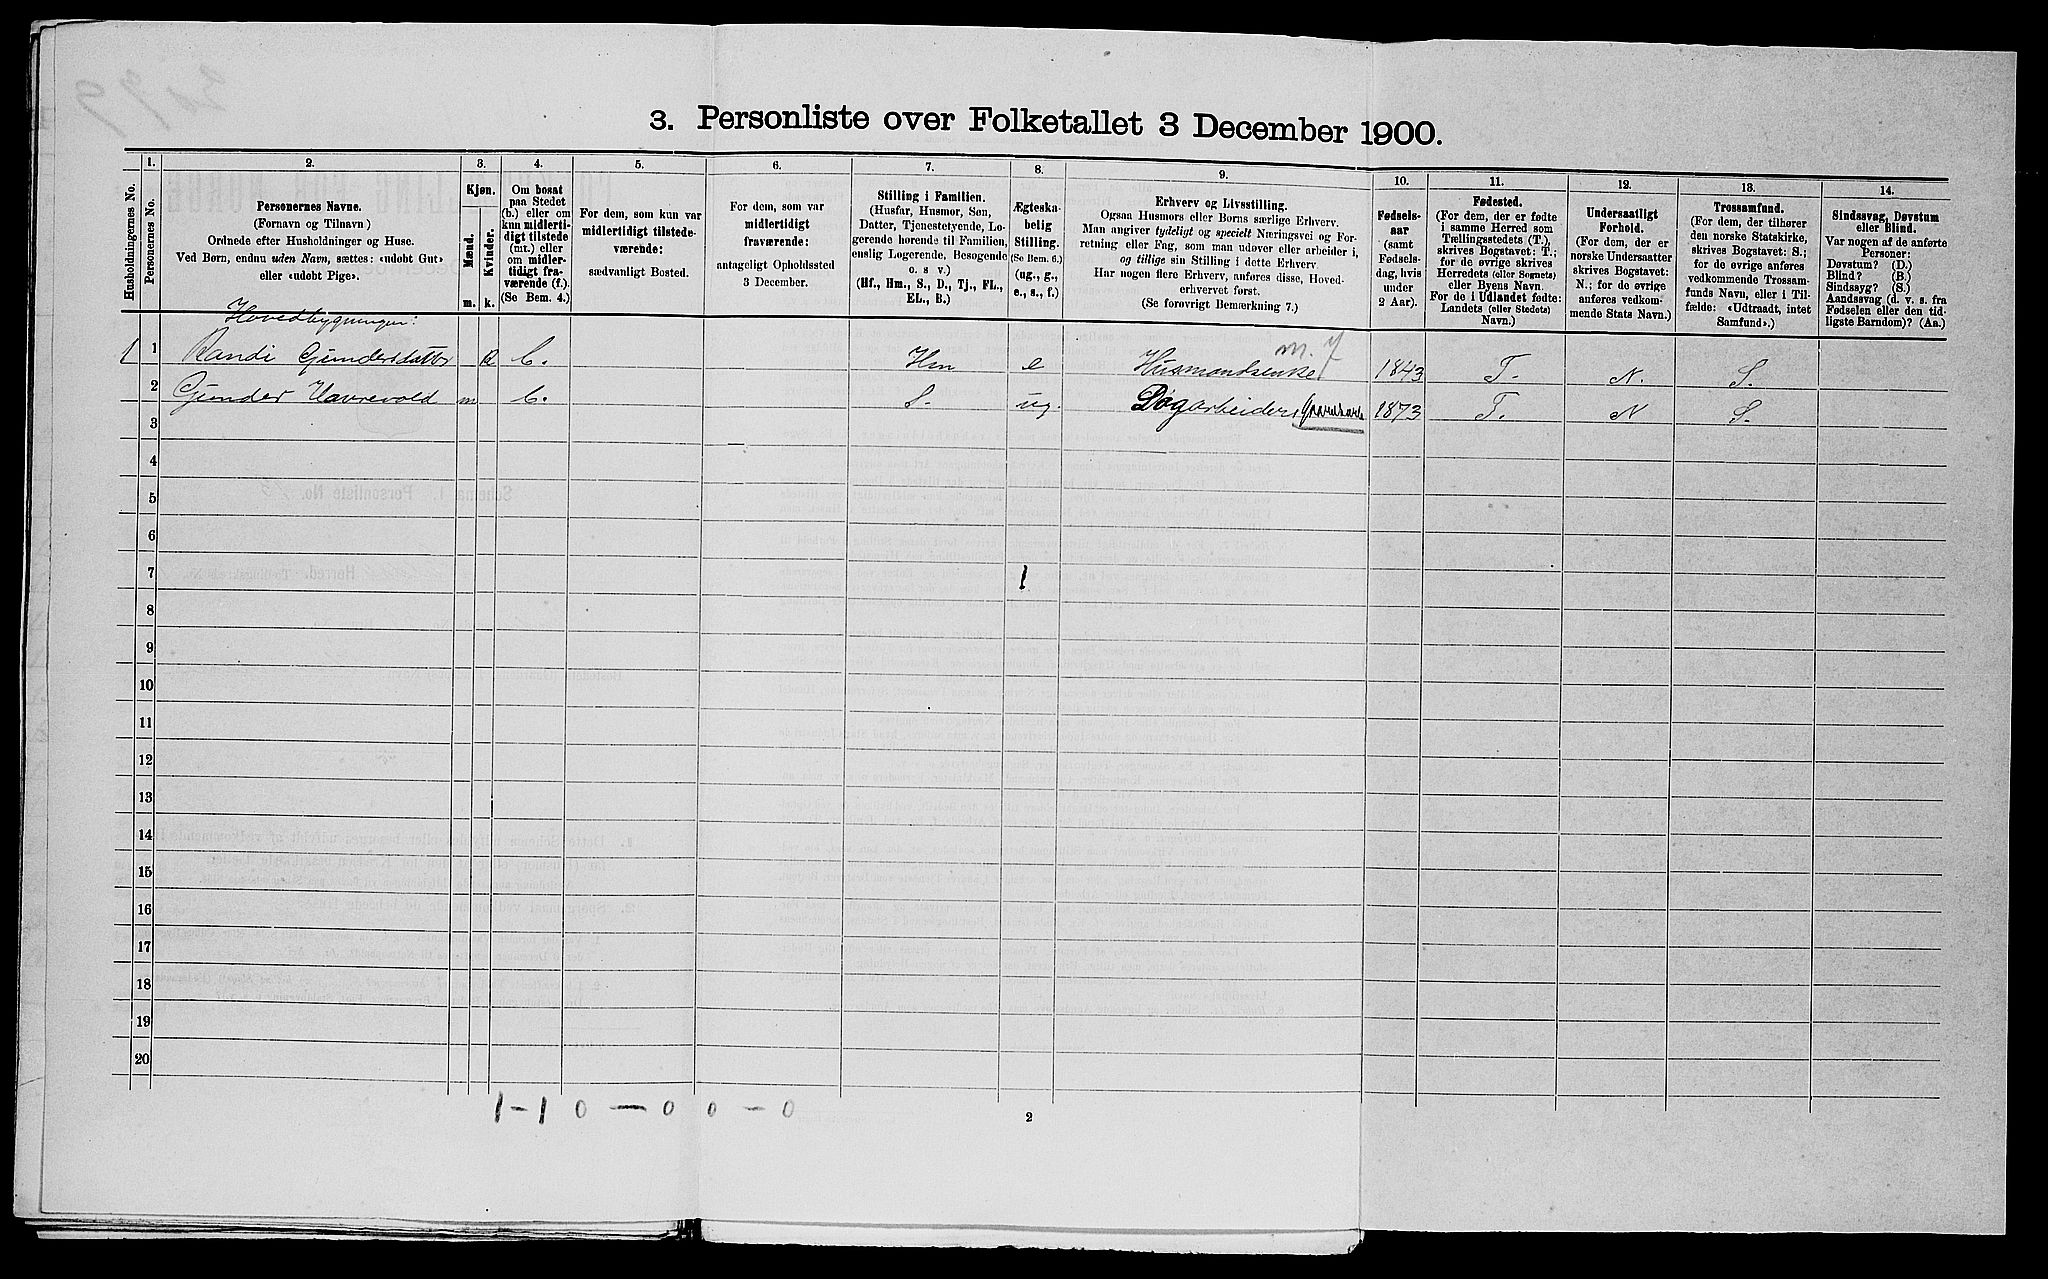 3. Personliste over Folketallet 3 December 1900.
Husholdningernes No.
1.
Personernes No.
2.
Personernes Navne.
(Fornavn og Tilnavn)
Ordnede efter Husholdninger og Huse.
Ved Børn, endnu uden Navn, sættes: «udøbt Gut»
eller «udøbt Pige».
3.
Kjøn.
Mænd.
Kvinder.
m.
k.
4.
Om bosat
paa Stedet
(b.) eller om
kun midlerti-
digt tilstede
(mt.) eller
om midler-
tidigt fra-
værende (f.).
(Se Bem. 4.)
5.
For dem, som kun var
midlertidigt tilstede-
værende:
sædvanligt Bosted.
6.
For dem, som var
midlertidigt
fraværende:
antageligt Opholdssted
3 December.
7.
Stilling i Familien.
(Husfar, Husmor, Søn,
Datter, Tjenestetyende, Lo-
gerende hørende til Familien,
enslig Logerende, Besøgende
o. s v.)
(Hf., Hm., S., D., Tj., FL.,
EL., B.)
8.
Ægteska-
belig
Stilling.
(Se Bem. 6.)
(ug., g.,
e., s., f.)
9.
Erhverv og Livsstilling.
Ogsaa Husmors eller Børns særlige Erhverv.
Man angiver tydeligt og specielt Næringsvei og For-
retning eller Fag, som man udøver eller arbeider i,
og tillige sin Stilling i dette Erhverv.
Har nogen flere Erhverv, anføres disse, Hoved-
erhvervet først.
(Se forøvrigt Bemærkning 7.)
10.
Fødsels-
aar
(samt
Fødsels-
dag, hvis
under
2 Aar).
11.
Fødested.
(For dem, der er fødte
i samme Herred som
Tællingsstedets (T.),
skrives Bogstavet: T.;
for de øvrige skrives
Herredets (eller Sognets)
eller Byens Navn.
For de i Udlandet fødte:
Landets (eller Stedets)
Navn.)
12.
Undersaatligt
Forhold.
(For dem, der er
norske Undersaatter
skrives Bogstavet:
N.; for de øvrige
anføres vedkom-
mende Stats Navn.)
13.
Trossamfund.
(For dem, der tilhører
den norske Statskirke,
skrives Bogstavet: S.;
for de øvrige anføres
vedkommende Trossam-
funds Navn, eller i Til-
fælde: «Udtraadt, intet
Samfund».)
14.
Sindssvag, Døvstum
eller Blind.
Var nogen af de anførte
Personer:
Døvstum? (D.)
Blind? (B.)
Sindssyg? (S.)
Aandssvag (d. v. s. fra
Fødselen eller den tid-
ligste Barndom)? (Aa.)
Hovedbygningen:
1 1 Randi Gundersdatter k b. Hm e Husmandsenke 1843 T. N. S.
2 Gunder Havrevold m b. S. ug. Dagarbeider, 1873 T. N S.
3
4
5
6
7 1
8
9
10
11
12
13
14
15
16
17
18
19
20
1-1 0 — 0 0 - 0
2